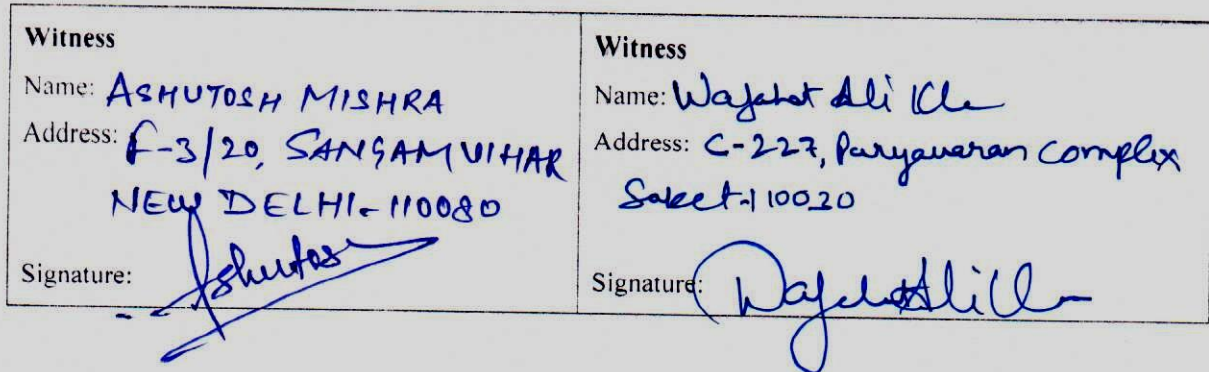 Witness
Name: ASHUTOSH MISHRA
Address: F-3/20, SANGAM VIHAR
NEW DELHI-110080
Signature: Ashutosh
Witness
Name: Wajahat Ali Kh
Address: C-227, Paryavaran Complex
Saket-110030
Signature: Wajahat Ali Kh